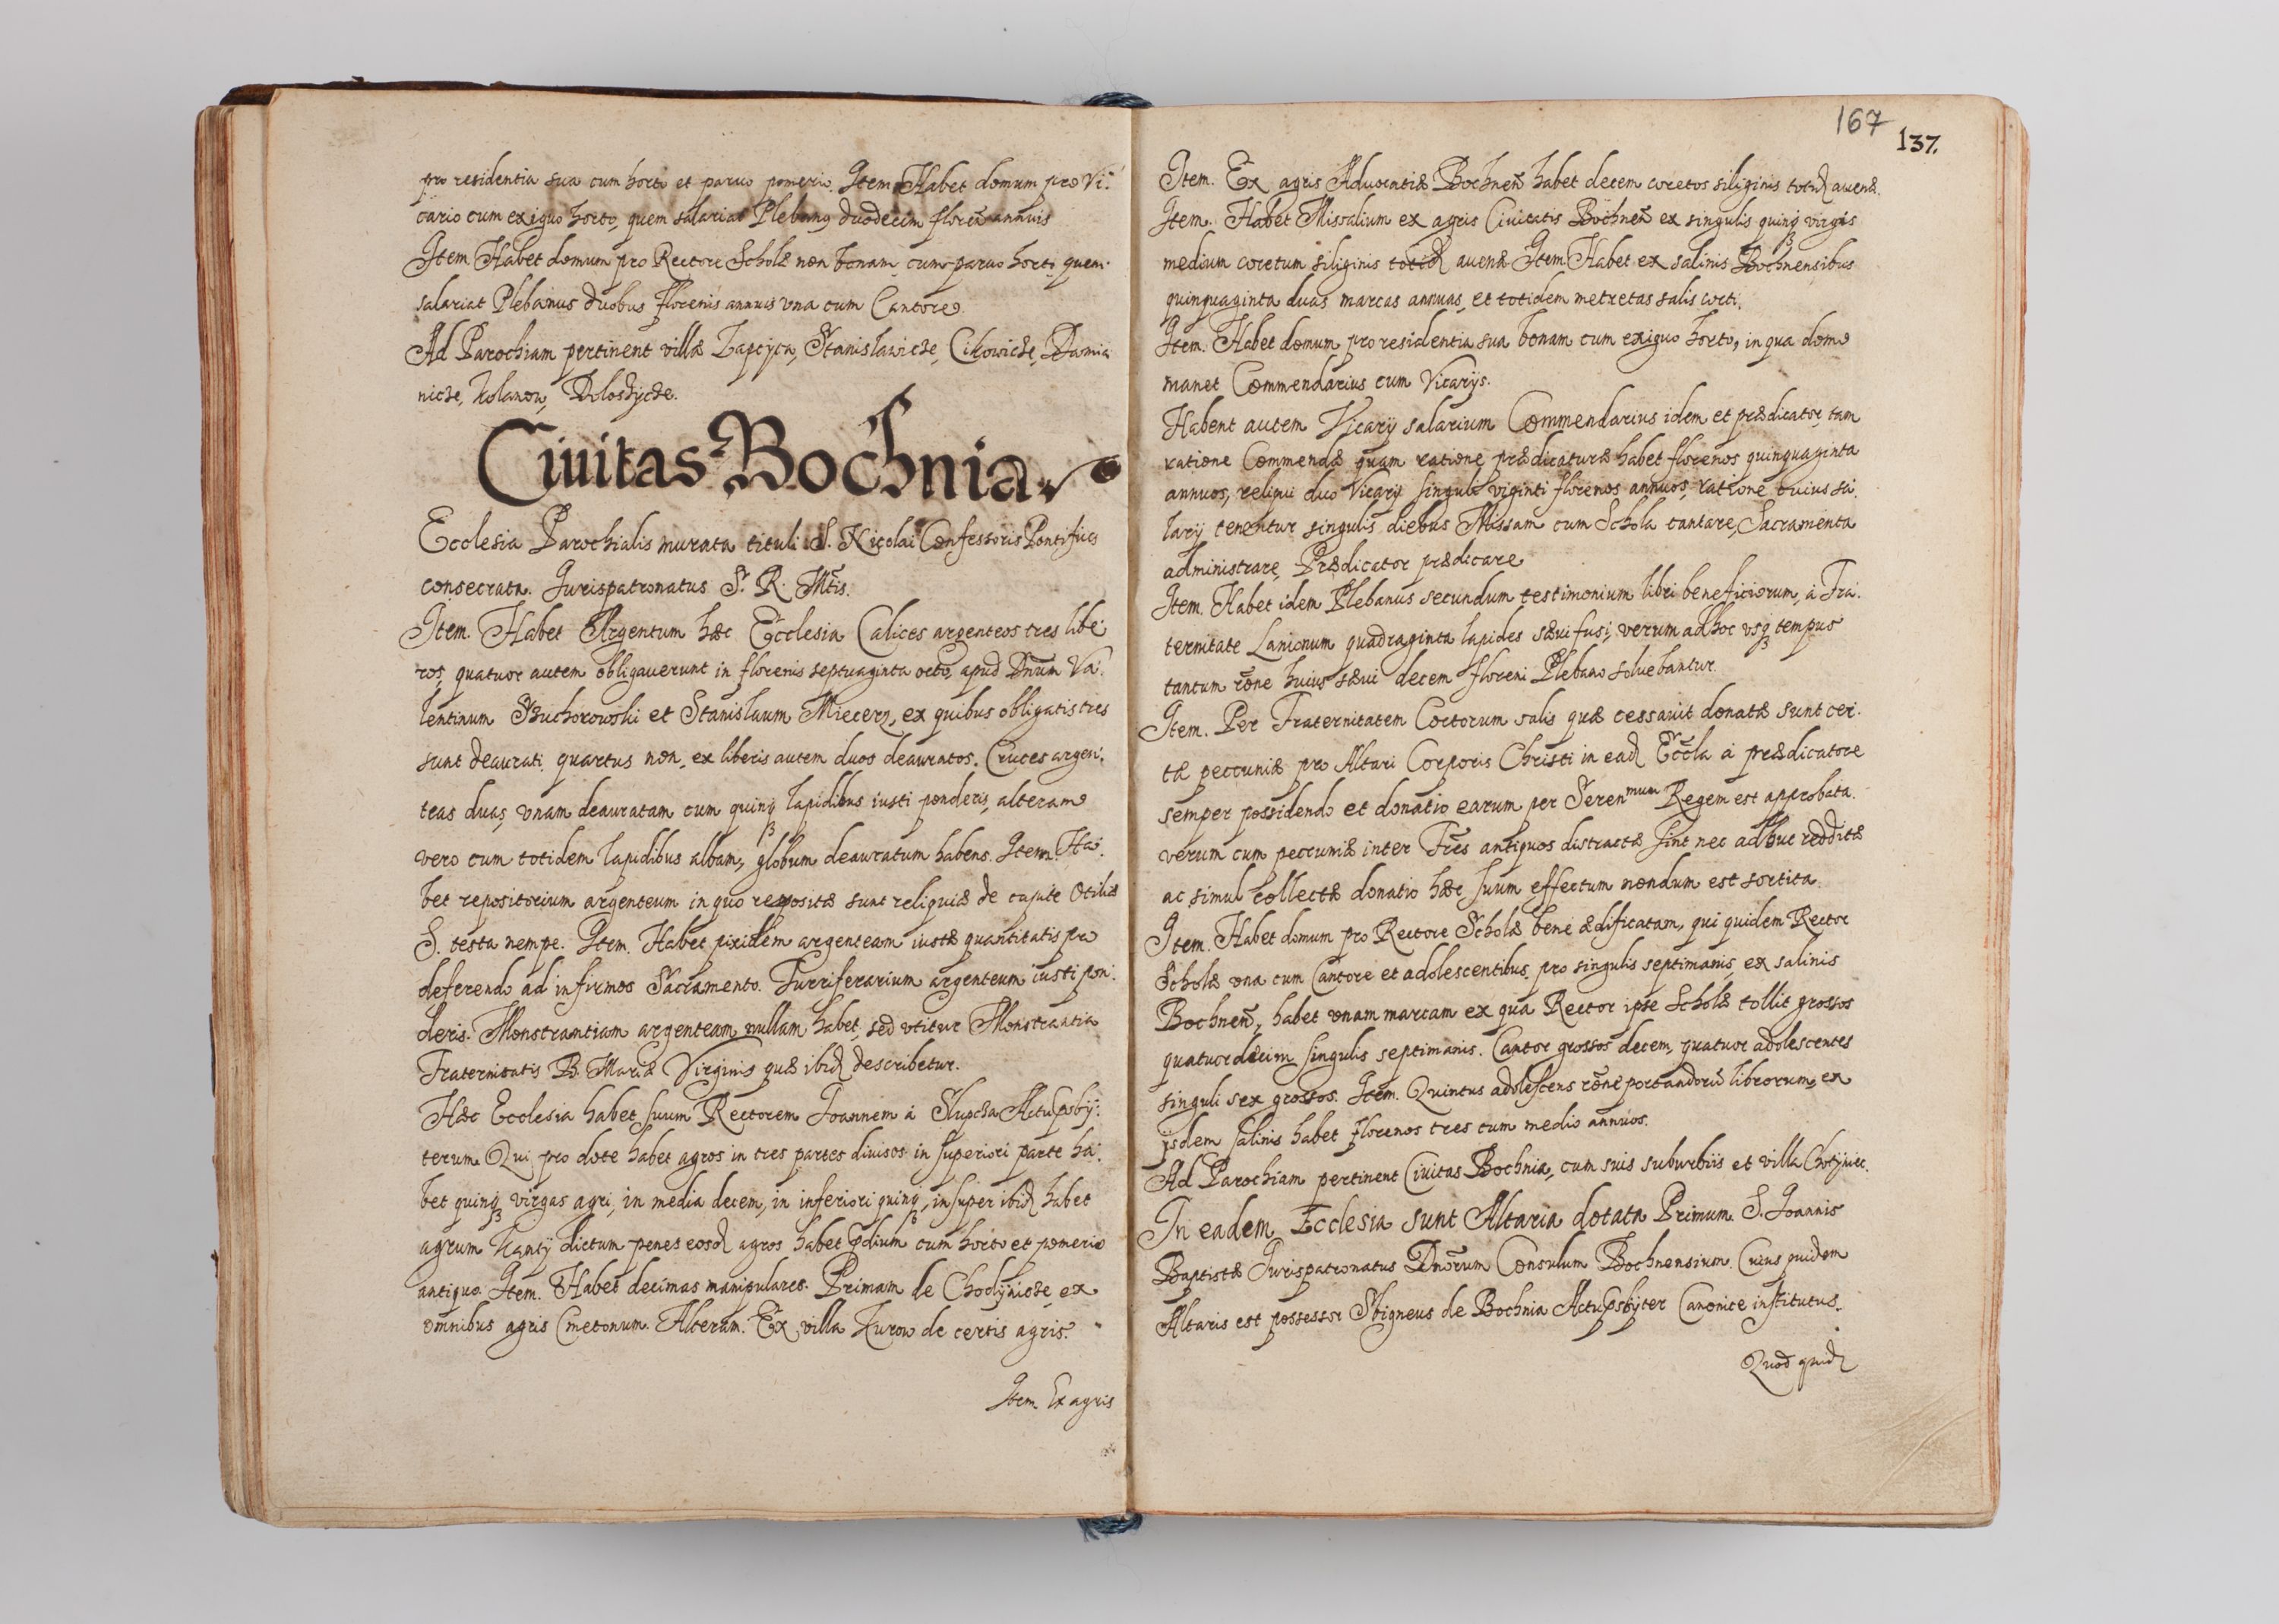 pro residentia sua cum horto et paruo pomerio. Item Habet domum pro Vi:
cario cum exiguo horto, quem salariat Plebanꝰ duodecim floreñ annuis
Item Habet domum pro Rectore Scholæ non bonam cum paruo horto, quem
salariat Plebanus duobus florenis annuis vna cum Cantore.
Ad Parochiam pertinent villæ Łapczyca, Stanislawicze, Cikowicze, Damia
nicze, Kolanow,
Ciuitas Bochnia.
Ecclesia Parochialis murata tituli S. Nicolai Confessoris Pontificis
consecrata. Jurispatronatus S. R. Mtis.
Item. Habet Argentum hæc Ecclesia Calices argenteos tres libe:
ros, quatuor autem obligauerunt in florenis septuaginta octo, apud Dnum Va:
lentinum et Stanislaum ex quibus obligatis tres
sunt deaurati, quartus non, ex liberis autem duos deauratos. Cruces argen:
teas duas, vnam deauratam cum quinqꝫ lapidibus iusti ponderis, alteram
vero cum totidem lapidibus albam, globum deauratum habens. Item. Ha:
bet repositorium argenteum in quo repositæ sunt reliquiæ de capite Otiliæ
S. testa nempe. Item. Habet pixidem argenteam iustæ quantitatis pro
deferendo ad infirmos Sacramento. Turriferarium argenteum iusti pon:
deris. Monstrantiam argenteam nullam habet, sed vtitur Monstrantia
Fraternitatis B. Mariæ Virginis quæ ibid describetur.
Hæc Ecclesia habet suum Rectorem Joannem à Slupcza Actu Psby:
terum. Qui pro dote habet agros in tres partes diuisos in superiori parte ha:
bet quinqꝫ virgas agri, in media decem, in inferiori quinqꝫ, insuper ibid habet
agrum Kanty dictum penes eosd agros habet Pdium cum horto et pomerio
antiquo. Item. Habet decimas manipulares. Primam de Chodynicze, ex
omnibus agris Cmetonum. Alteram. Ex villa Kurow de certis agris.
Item Ex agris
167
137.
Item. Ex agris Aduocatiæ Bochneñ habet decem coretos siliginis totid auenæ.
Item. Habet Missalium ex agris Ciuitatis Bochneñ ex singulis quinqꝫ virgis
medium coretum siliginis totid auenæ Item. Habet ex salinis Bochnensibus
quinquaginta duas marcas annuas, et totidem metretas salis cocti.
Item. Habet domum pro residentia sua bonam cum exiguo horto, in qua domo
manet Commendarius cum Vicarys.
Habent autem Vicary salarium Commendarius idem et prædicator, tam
ratione Commendæ quam ratione prædicaturæ habet florenos quinquaginta
annuos, reliqui duo Vicary singuli viginti florenos annuos, ratione cuius sa:
lary tenentur singulis diebus Missam cum Schola cantare, Sacramenta
administrare, Prædicator prædicare
Item. Habet idem Plebanus secundum testimonium libri beneficiorum, à Fra:
ternitate Lanionum quadraginta lapides sæui fusi, verum adhoc vsqꝫ tempus
tantum rõne huius sæui decem floreni Plebano soluebantur.
Item. Per Fraternitatem Coctorum salis quæ cessauit donatæ sunt cer:
tæ peccuniæ pro Altari Corporis Christi in ead Eccla à prædicatore
semper possidendo et donatio earum per Seren^mum Regem est approbata.
verum cum peccuniæ inter Frẽs antiquos distractæ sint nec adhuc redditæ
ac simul collectæ donatio hæc suum effectum nondum est sortita.
Item. Habet domum pro Rectore Scholæ bene ædificatam, qui quidem Rector
Scholæ vna cum Cantore et adolescentibus pro singulis septimanis, ex salinis
Bochneñ, habet vnam marcam ex qua Rector ipse Scholæ tollit grossos
quatuordecim singulis septimanis. Cantor grossos decem, quatuor adolescentes
singuli sex grossos. Item. Quintus adolescens rõne portandorũ librorum, ex
ysdem salinis habet florenos tres cum medio annuos.
Ad Parochiam pertinent Ciuitas Bochnia, cum suis suburbiis et villa
In eadem Ecclesia sunt Altaria dotata Primum. S. Joannis
Baptistæ Jurispatronatus Dnõrum Consulum Bochnensium. Cuius quidem
Altaris est possessor Sbigneus de Bochnia Actu Psbyter Canonice institutus.
Quod quid